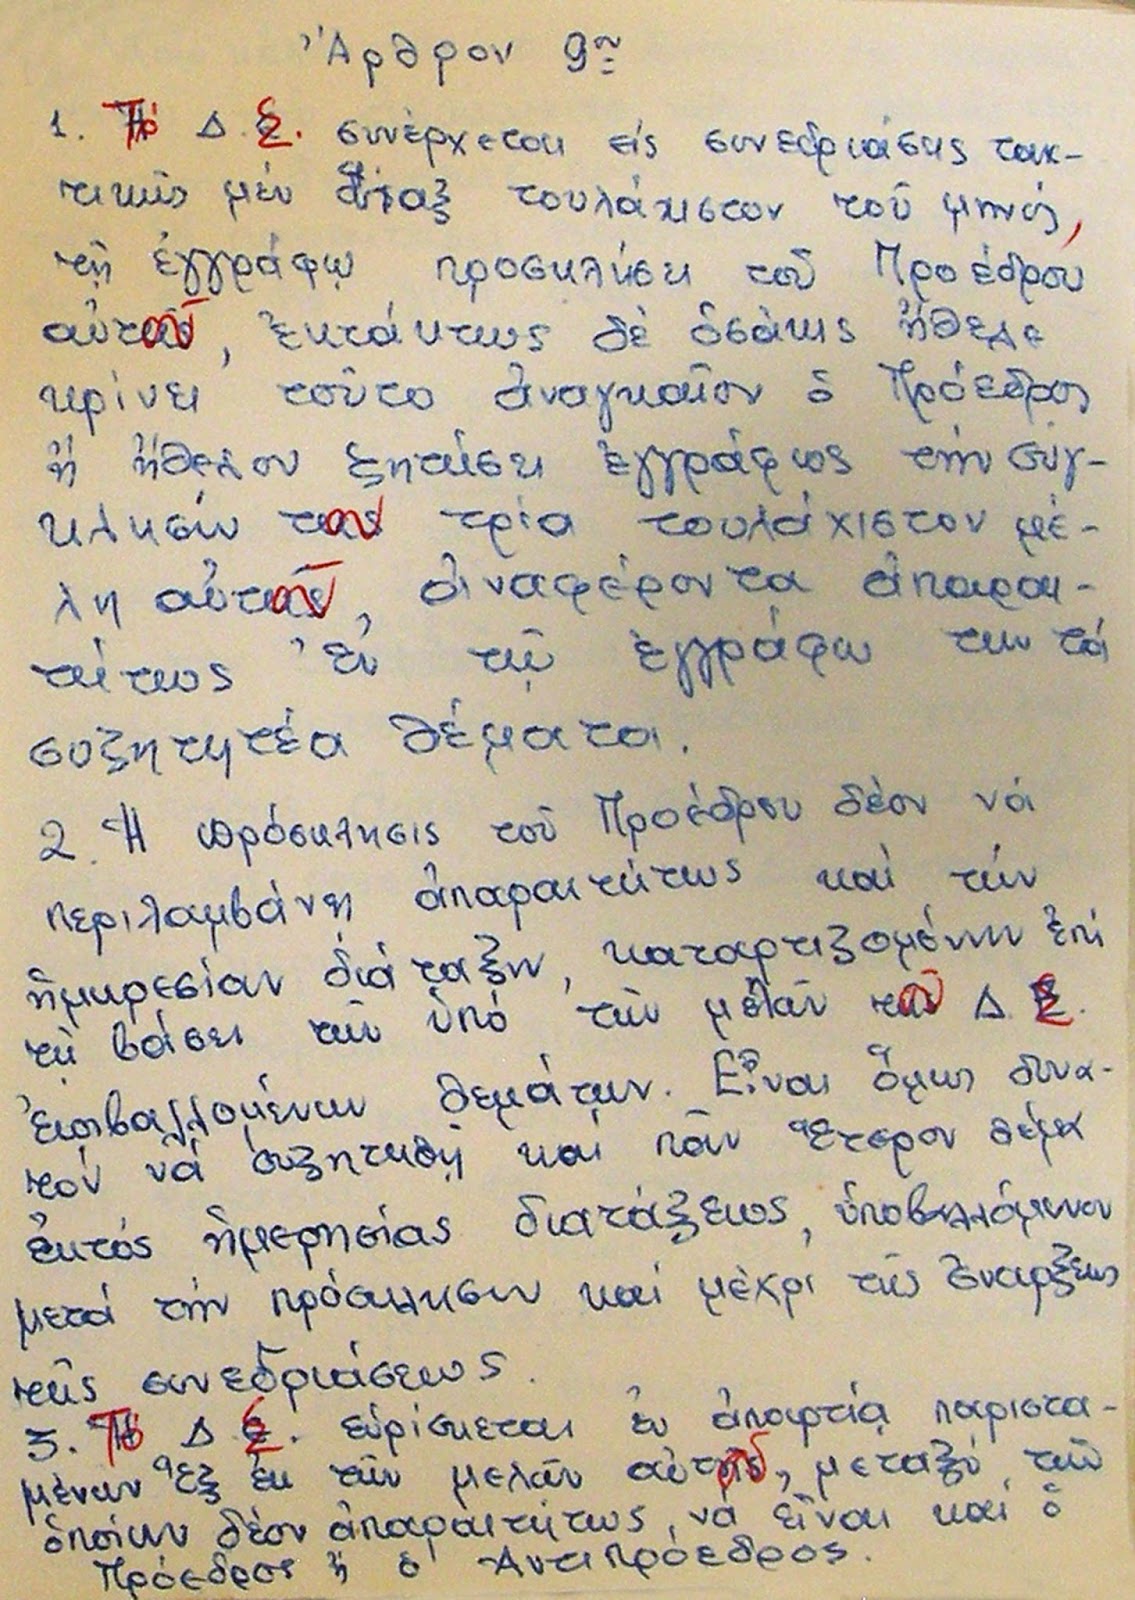 Ἄρθρον 9ον
1. Τό Δ Σ. συνέρχεται εἰς συνεδριάσεις τακ-
τικῶς μέν ἅπαξ τουλάχιστον τοῦ μηνός,
τῇ ἐγγράφῳ προσκλήσει τοῦ Προέδρου
αὐτοῦ, ἐκτάκτως δέ ὁσάκις ἤθελε
κρίνει τοῦτο ἀναγκαῖον ὁ Πρόεδρος
ἤ ἤθελον ζητήσει ἐγγράφως τήν σύγ-
κλησίν του τρία τουλάχιστον μέ-
λη αὐτοῦ, ἀναφέροντα ἀπαραι-
τήτως ἐν τῷ ἐγγράφω των τά
συζητητέα θέματα.
2. Ἡ πρόσκλησις τοῦ Προέδρου δέον νά
περιλαμβάνῃ ἀπαραιτήτως καί τήν
ἡμερησίαν διάταξιν, καταρτιζομένην ἐπί
τῇ βάσει τῶν ὑπό τῶν μελῶν τοῦ Δ Σ.
θεμάτων. Εἶναι ὅμως δυνα-
τόν νά συζητηθῇ καί πᾶν ἕτερον θέμα
ἐκτός ἡμερησίας διατάξεως, ὑποβαλλόμενον
μετά τήν πρόσκλησιν καί μέχρι τῆς ἐνάρξεως
τῆς συνεδριάσεως.
3. Τό Δ Σ. εὑρίσκεται ἐν ἀπαρτίᾳ παριστα-
μένων ἕξ ἐκ τῶν μελῶν αὐτοῦ, μεταξύ τῶν
ὁποίων δέον ἀπαραιτήτως, νά εἶναι καί ὁ
Πρόεδρος ἤ ὁ Αντιπρόεδρος.